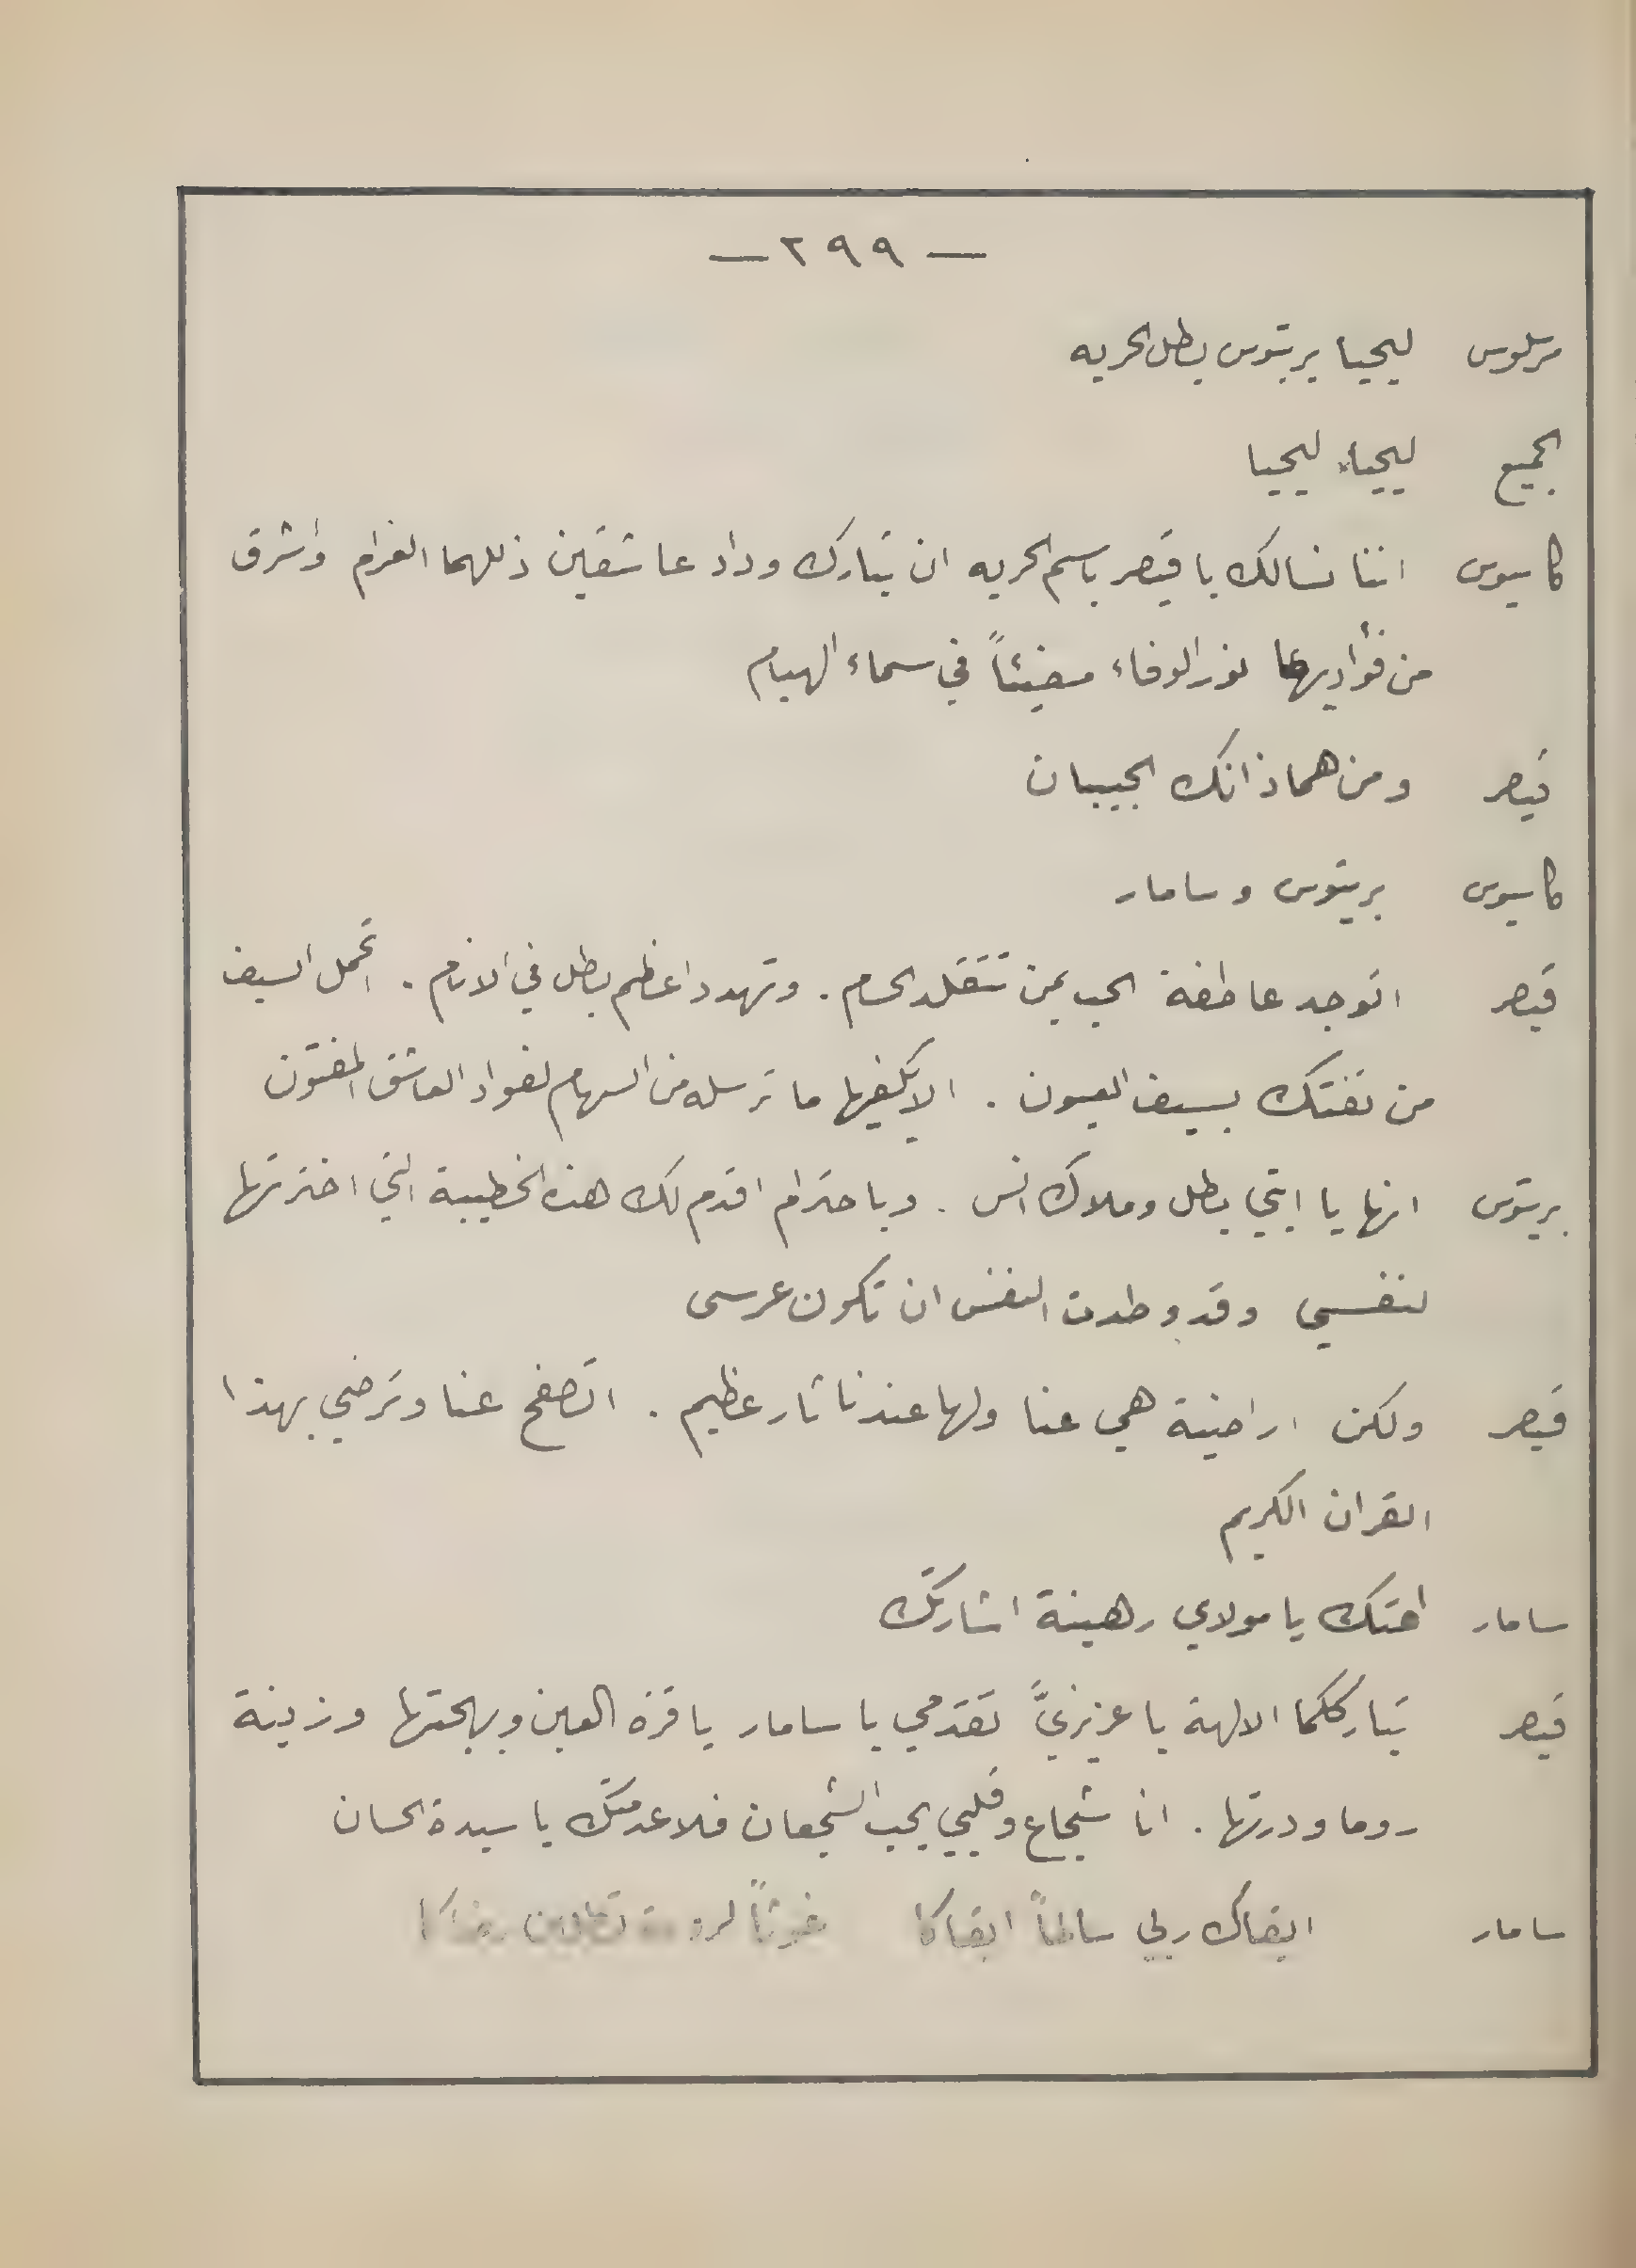 — ٢٩٩ —
مرسلوس ليحيا بريتوس بطل الحريه
الجميع ليحياء ليحيا
كاسيوس اننا نسالك يا قيصر باسم الحريه ان تبارك وداد عاشقين ذللهما الغرام واشرق
من فؤاديهما نور الوفاء مضيئاً في سماء الهيام
قيصر ومن هما ذانك الحبيبان
كاسيوس بريتوس وسامار
قيصر اتوجد عاطفة الحب بمن تتقلد الحسام . وتهدد اعظم بطل في الانام . اتحمل السيف
من تفتك بسيف العيون . الا يكفيها ما ترسله من السهام لفواد العاشق المفتون
بريتوس انها يا ابتي بطل وملاك انس . وباحترام اقدم لك هذه الخطيبة التي اخترتها
لنفسي وقد وطدت النفس ان تكون عرسى
قيصر ولكن اراضية هي عنا ولها عندنا ثار عظيم . اتصفح عنا وترضي بهذا
القران الكريم
سامار امتك يا مولاي رهينة اشارتك
قيصر تبارككما الالهة يا عزيزيَّ تقدمي يا سامار يا قرة العين وبهجتها وزينة
روما ودرتها . انا شجاع وقلبي يحب الشجعان فلا عدمتك يا سيدة الحسان
سامار ابقاك ربي سالماً ابقاكا غوثاً